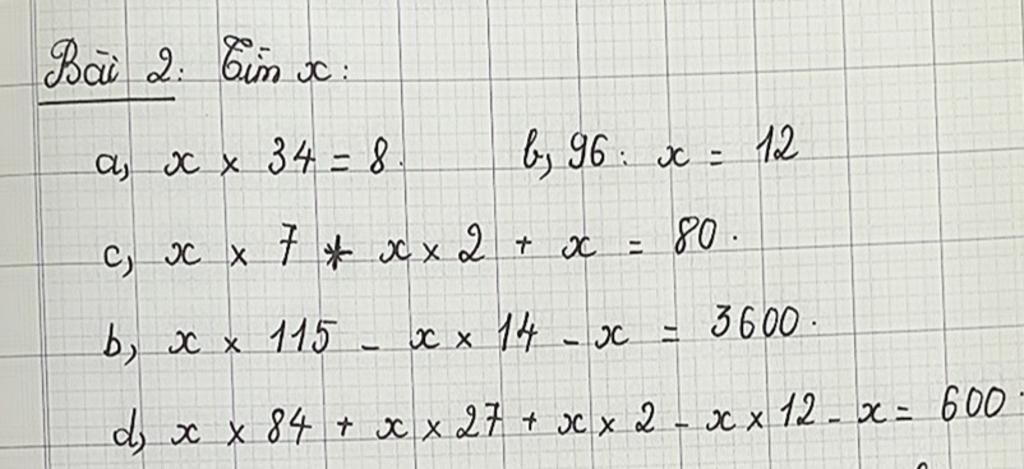 Bài 2: Tìm x:
a, x × 34 = 8. b, 96 : x = 12
c, x × 7 + x × 2 + x = 80.
b, x × 115 - x × 14 - x = 3600.
d, x × 84 + x × 27 + x × 2 - x × 12 - x = 600.